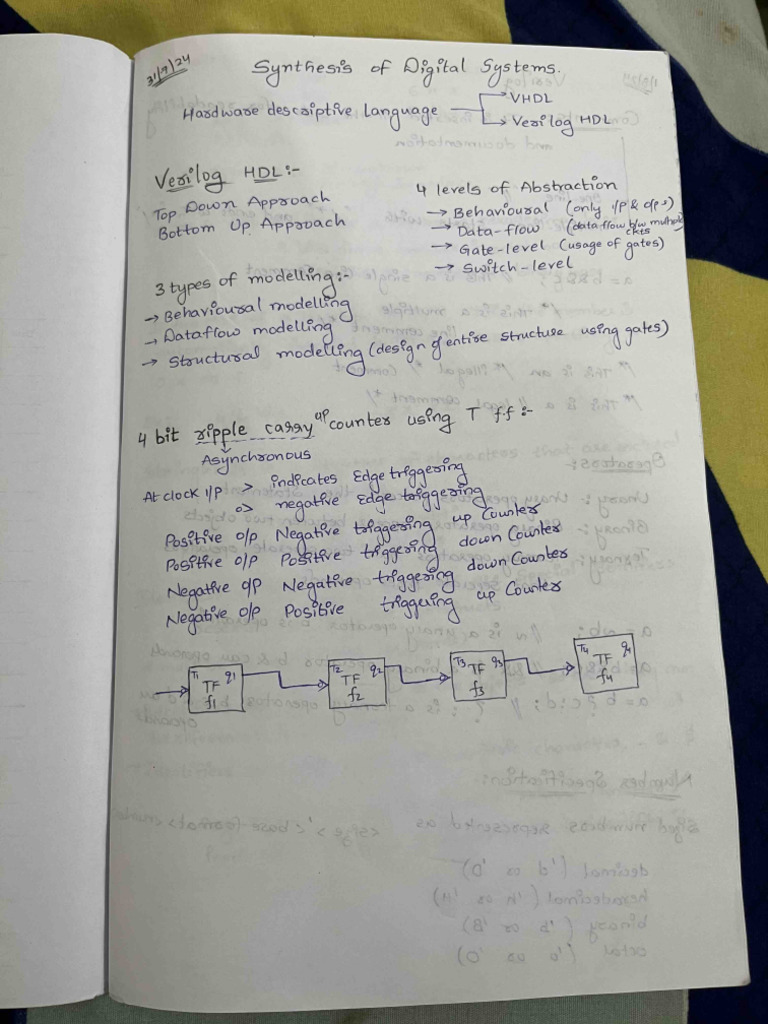 31/7/24
Synthesis of Digital Systems.
Hardware descriptive Language → VHDL
→ Verilog HDL
Verilog HDL:-
Top Down Approach
Bottom Up Approach
4 levels of Abstraction
→ Behavioural (only i/p & o/p's)
→ Data-flow (data flow b/w multiple ckts)
→ Gate-level (usage of gates)
→ Switch-level
3 types of modelling:-
→ Behavioural modelling
→ Dataflow modelling
→ Structural modelling (design of entire structure using gates)
4 bit ripple carry up counter using T f.f:-
Asynchronous
At clock i/p > indicates Edge triggering
o> negative Edge triggering
Positive o/p Negative triggering up Counter
Positive o/p Positive triggering down Counter
Negative o/p Negative triggering down Counter
Negative o/p Positive triggering up Counter
T1 q1 T2 q2 T3 q3 T4 q4
TF TF TF TF
f1 f2 f3 f4